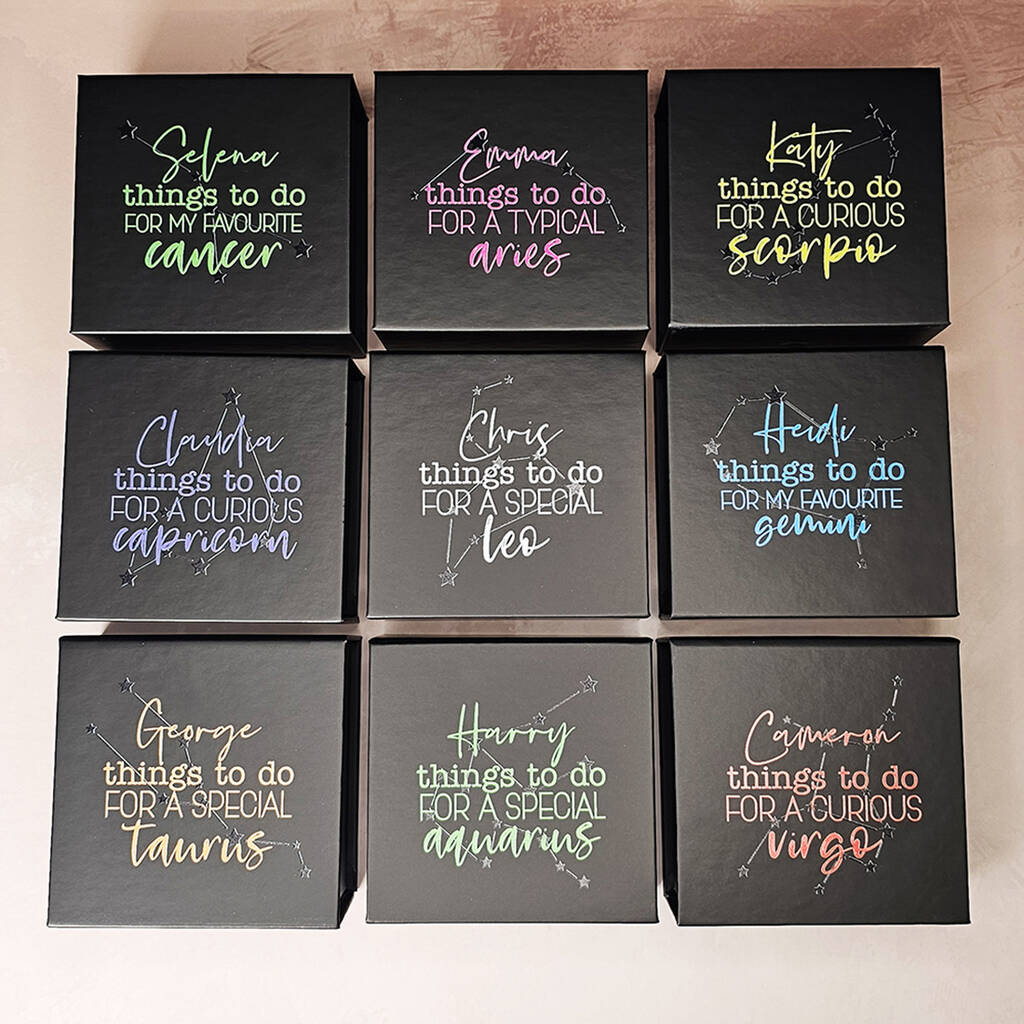 Selena
things to do
FOR MY FAVOURITE
cancer
Emma
things to do
FOR A TYPICAL
aries
Katy
things to do
FOR A CURIOUS
scorpio
Claudia
things to do
FOR A CURIOUS
capricorn
Chris
things to do
FOR A SPECIAL
leo
Heidi
things to do
FOR MY FAVOURITE
gemini
George
things to do
FOR A SPECIAL
taurus
Harry
things to do
FOR A SPECIAL
aquarius
Cameron
things to do
FOR A CURIOUS
virgo